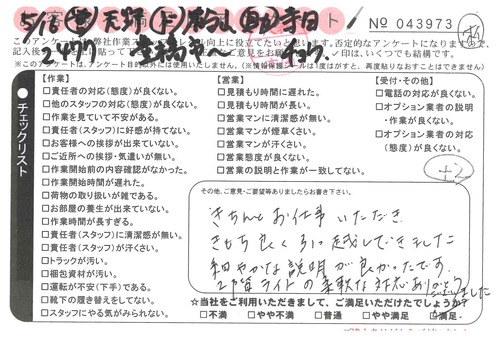 No 043973
このアンケートは弊社作業ス
向上に役立てたいと思います。否定的なアンケートになりますので、
記入後
印は、いつでも結構です。
※このアンケートは、アンケート目的以外には使用いたしません。(※情報保護シールは1度はがすと、再度貼りなおすことはできません)
チェックリスト
【作業】
□責任者の対応(態度)が良くない。
□他のスタッフの対応(態度)が良くない。
□作業を見ていて不安がある。
□責任者(スタッフ)に好感が持てない。
□お客様への挨拶が出来ていない。
□ご近所への挨拶・気遣いが無い。
□作業開始前の内容確認がなかった。
□作業開始時間が遅れた。
□荷物の取り扱いが雑である。
□お部屋の養生が出来ていない。
□作業時間が長すぎる。
□責任者(スタッフ)に清潔感が無い。
□責任者(スタッフ)が汗くさい。
□トラックが汚い。
□梱包資材が汚い。
□運転が不安(下手)である。
□靴下の履き替えをしてない。
□スタッフにやる気がみられない。
【営業】
□見積もり時間に遅れた。
□見積もり時間が長い。
□営業マンに清潔感が無い。
□営業マンが煙草くさい。
□営業マンが汗くさい。
□営業態度が良くない。
□営業の説明と作業が一致してない。
【受付・その他】
□電話の対応が良くない。
□オプション業者の説明
・作業が良くない。
□オプション業者の対応
(態度)が良くない。
+2
その他、ご意見・ご要望等ありましたらお書き下さい。
きちんとお仕事いただき
きもち良く引っ越しできました
細やかな説明が良かったです。
ライトの柔軟な対応ありがとうございました
☆当社をご利用いただきまして、ご満足いただけたでしょうか?
□不満 □やや不満 □普通 □やや満足 □満足